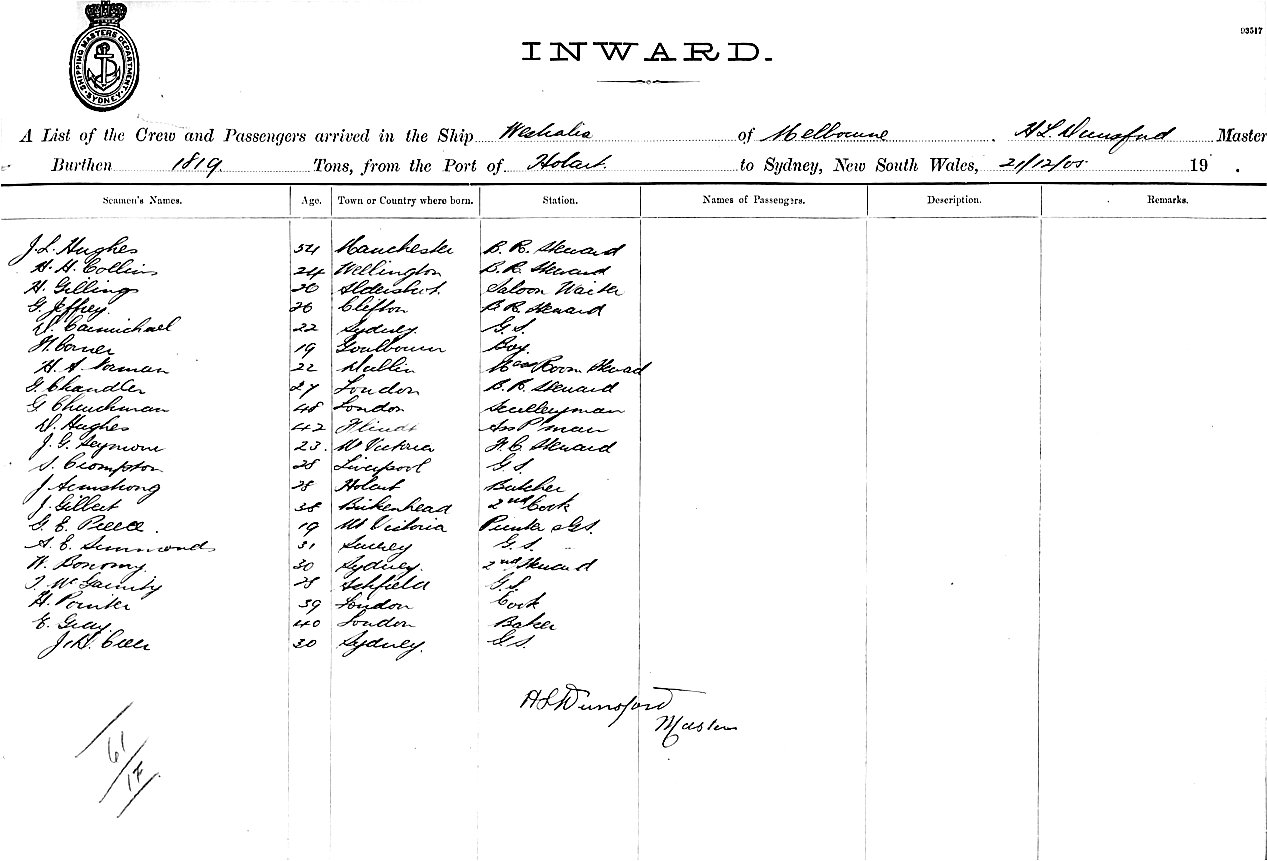 SHIPPING MASTERS DEPARTMENT SYDNEY
INWARD.
03517
A List of the Crew and Passengers arrived in the Ship Westralia of Melbourne . H L Dunsford Master
Burthen 1819 Tons, from the Port of Hobart to Sydney, New South Wales, 21/12/05 19 .
Seamen's Names. Age. Town or Country where born. Station. Names of Passengers. Description. Remarks.
J. L. Hughes 54 Manchester B. R. Steward
H. H. Collins 24 Wellington B. R. Steward
H. Gillings 26 Aldershot. Saloon Waiter
G. Jeffrey 26 Clifton B R Steward
D. Carmichael 22 Sydney. G. S.
Corner 19 Goulbourn Boy
H. A. Norman 22 Dublin Room Steward
G. Chandler 27 London B. R. Steward
G Churchman 48 London Sculleyman
D. Hughes 42 Flindt Ass P'man
J. G. Seymour 23. Mt Victoria F. C. Steward
S. Crompton 28 Liverpool G. S.
J Armstrong 28 Hobart Butcher
J. Gilbert 38 Birkenhead 2nd Cook
G. E. Pierce . 19 Mt Victoria Printer & GS.
A. E. Simmonds 31 Surrey G. S.
W. Bonomy. 30 Sydney. 2nd Steward
28 Ashfield G. S.
H. Pointer 39 London Cook
E. Gray. 40 London Baker
J. H. 30 Sydney. G S.
H L Dunsford
Master
61/17